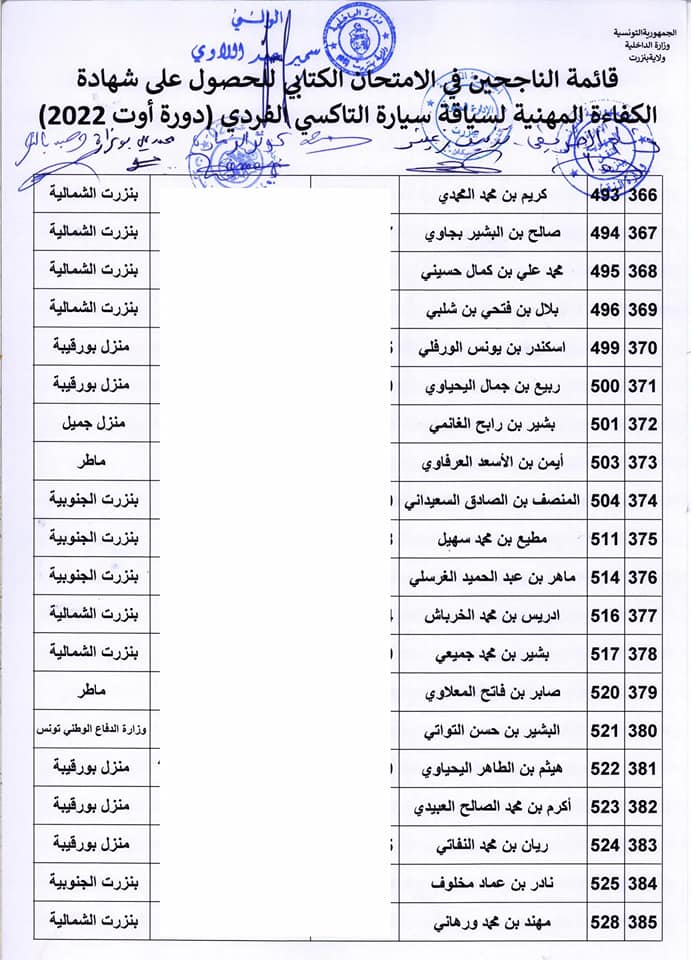 الجمهورية التونسية
وزارة الداخلية
ولاية بنزرت
الوالي
سمير عبد اللاوي
قائمة الناجحين في الامتحان الكتابي للحصول على شهادة
الكفاءة المهنية لسياقة سيارة التاكسي الفردي (دورة أوت 2022)
366 493 كريم بن محمد المحمدي بنزرت الشمالية
367 494 صالح بن البشير بجاوي بنزرت الشمالية
368 495 محمد علي بن كمال حسيني بنزرت الشمالية
369 496 بلال بن فتحي بن شلبي بنزرت الشمالية
370 499 اسكندر بن يونس الورفلي منزل بورقيبة
371 500 ربيع بن جمال اليحياوي منزل بورقيبة
372 501 بشير بن رابح الغانمي منزل جميل
373 503 أيمن بن الأسعد العرفاوي ماطر
374 504 المنصف بن الصادق السعيداني بنزرت الجنوبية
375 511 مطيع بن محمد سهيل بنزرت الجنوبية
376 514 ماهر بن عبد الحميد الغرسلي بنزرت الجنوبية
377 516 ادريس بن محمد الخرباش بنزرت الشمالية
378 517 بشير بن محمد جميعي بنزرت الشمالية
379 520 صابر بن فاتح المعلاوي ماطر
380 521 البشير بن حسن التواتي وزارة الدفاع الوطني تونس
381 522 هيثم بن الطاهر اليحياوي منزل بورقيبة
382 523 أكرم بن محمد الصالح العبيدي منزل بورقيبة
383 524 ريان بن محمد النفاتي منزل بورقيبة
384 525 نادر بن عماد مخلوف بنزرت الجنوبية
385 528 مهند بن محمد ورهاني بنزرت الشمالية